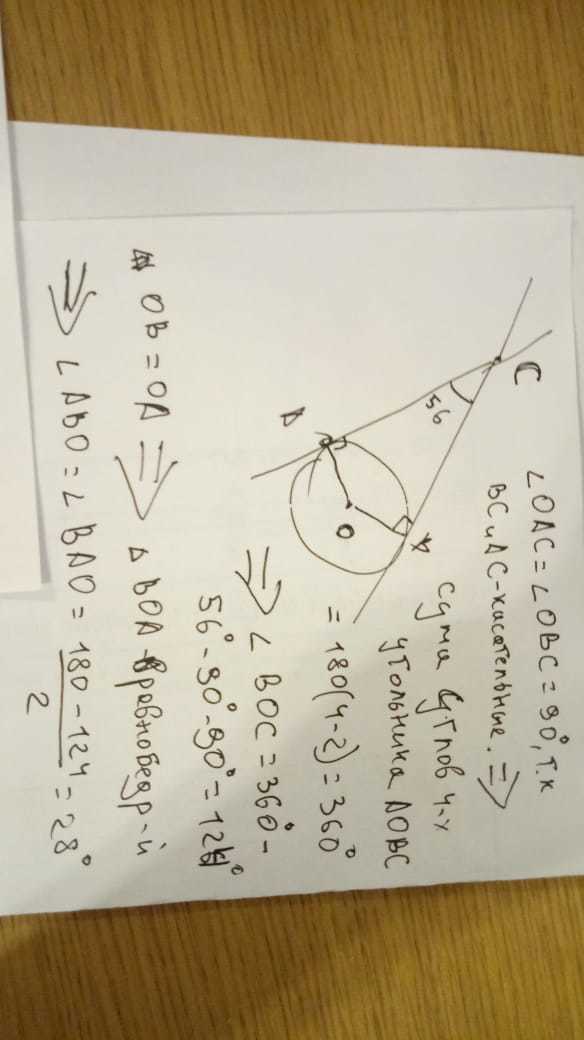 C
56
A
B
O
∠OAC = ∠OBC = 90°, т.к
BC и AC - касательные. ⇒
сума углов 4-х
угольника AOBC
= 180(4-2) = 360°
⇒ ∠BOC = 360° -
56° - 90° - 90° = 124°
OB = OA ⇒ △ BOA - равнобедр-й
⇒ ∠ABO = ∠BAO = 180 - 124 / 2 = 28°